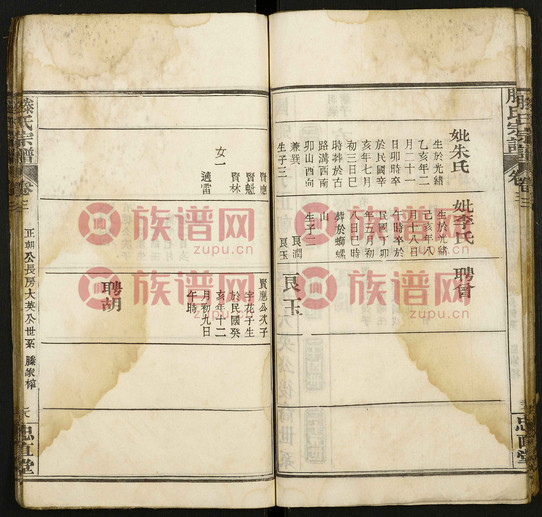 滕氏宗譜
卷三
忠直堂
妣朱氏
生於光緒
乙亥年二
月二十一
日卯時卒
於民國辛
亥年七月
初三日巳
時葬於古
路溝西南
卯山酉向
兼巽
生子三
賢應
賢魁
賢林
女一
適雷
妣李氏
生於光緒
己亥年八
月十八日
午時卒於
民國丁卯
年五月初
八日巳時
葬於螄螺
山
生子二
良潤
良玉
聘曾
良玉
賢應公次子
字花子生
於民國癸
亥年十二
月初九日
午時
聘胡
滕氏宗譜
卷三
正朝公長房大英公世系
滕家榜
忠直堂
族谱网
zupu.cn
族谱网
zupu.cn
族谱网
zupu.cn
族谱网
zupu.cn